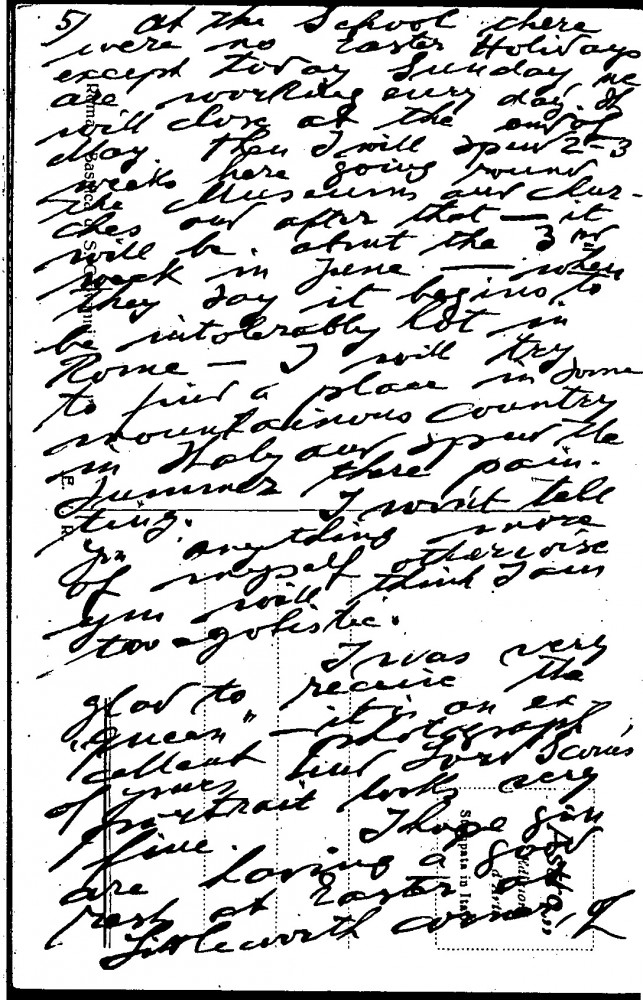 5) At the School there
were no Easter Holidays
except today Sunday, we
are working every day. It
will close at the end of
May. Then I will spend 2-3
weeks here going round
the Museums and Chur-
ches and after that — it
will be about the 3rd
week in June — when
they say it begins to
be intolerably hot in
Rome — I will try
to find a place in some
mountainous country
in Italy and spend the
summer there pain-
ting. I won't tell
you anything more
of myself otherwise
you will think I am
too egoistic.
I was very
glad to receive the
"Queen" — it is an ex-
cellent photograph
of yours and Lord
portrait looks very
fine. I hope you
are having a good
rest at Easter
Littleworth corner, of
Roma Basilica S. Giovanni
E. R.
Stampata in Italia